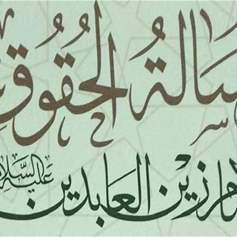 سالةُ الحُقُوق
م زين العابدين عليه السلا